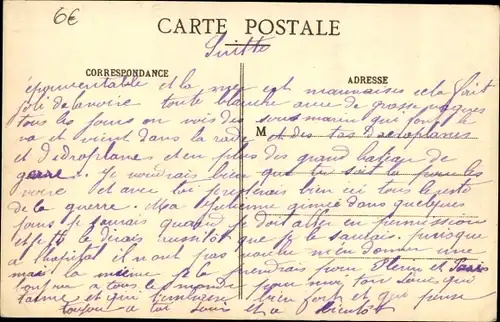 6€
CARTE POSTALE
Suitte
CORRESPONDANCE
ADRESSE
M
épouventable et la mer est mauvaises cela fait
joli de la voire toute blanche avec de grosse vagues
tous les jours on vois des sous marin qui font le
va et vient dans la rade et des tas d'aeroplanes
et d'idroplanes et en plus des grand bateau de
guerre. Je voudrais bien que tu soit la pour les
voire et avec toi je resterais bien ici tous le reste
de la guerre. Ma aimée dans quelques
jours je saurais quand je doit aller en permission
et je te le dirais aussitôt que je le saurais puisque
a l'hopital il n'ont pas voulue m'en donner une
mais la mienne je la prendrais pour et Paris
a tous le monde pour moi ton qui
t'aime et qui t'embrasse bien fort et qui pense
toujour a toi et a bientôt